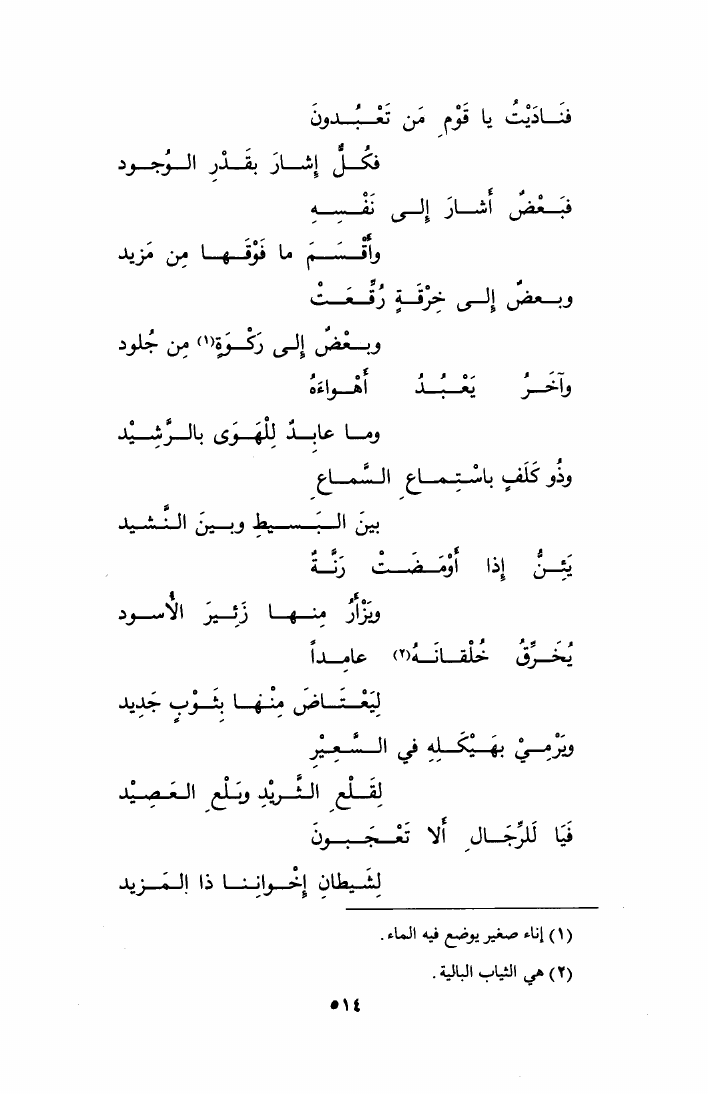 فَنَادَيْتُ يا قَوْمِ مَن تَعْبُدونَ
فكُلٌّ إشارَ بقَدْرِ الوُجود
فبَعْضٌ أشارَ إلى نَفْسِهِ
وأَقْسَمَ ما فَوْقَها مِن مَزيد
وبعضٌ إلى خِرْقَةٍ رُقِّعَتْ
وبعْضٌ إلى رَكْوَةٍ(١) مِن جُلود
وآخَرُ يَعْبُدُ أَهْواءَهُ
وما عابِدٌ لِلْهَوَى بالرَّشِيْد
وذُو كَلَفٍ باسْتِماعِ السَّماعِ
بينَ البَسيطِ وبينَ النَّشيد
يَئِنُّ إذا أوْمَضَتْ رَنَّةٌ
ويَزْأَرُ مِنها زَئيرَ الأُسود
يُخَرِّقُ خُلْقانَهُ(٢) عامِداً
لِيَعْتَاضَ مِنْها بِثَوْبٍ جَدِيد
ويَرْمِيْ بهَيْكَلِهِ في السَّعِيْرِ
لِقَلْعِ الثَّرِيْدِ وبَلْعِ العَصِيْد
فَيَا لَلرِّجَالِ ألا تَعْجَبونَ
لِشَيطانِ إخْوانِنا ذا المَزيد
(١) إناء صغير يوضع فيه الماء .
(٢) هي الثياب البالية .
٥١٤